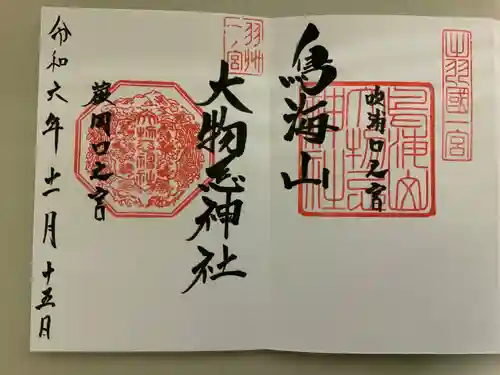 出羽國一宮
吹浦口之宮
鳥海山
鳥海山大物忌神社
羽州一ノ宮
大物忌神社
蕨岡口之宮
令和六年十一月十五日